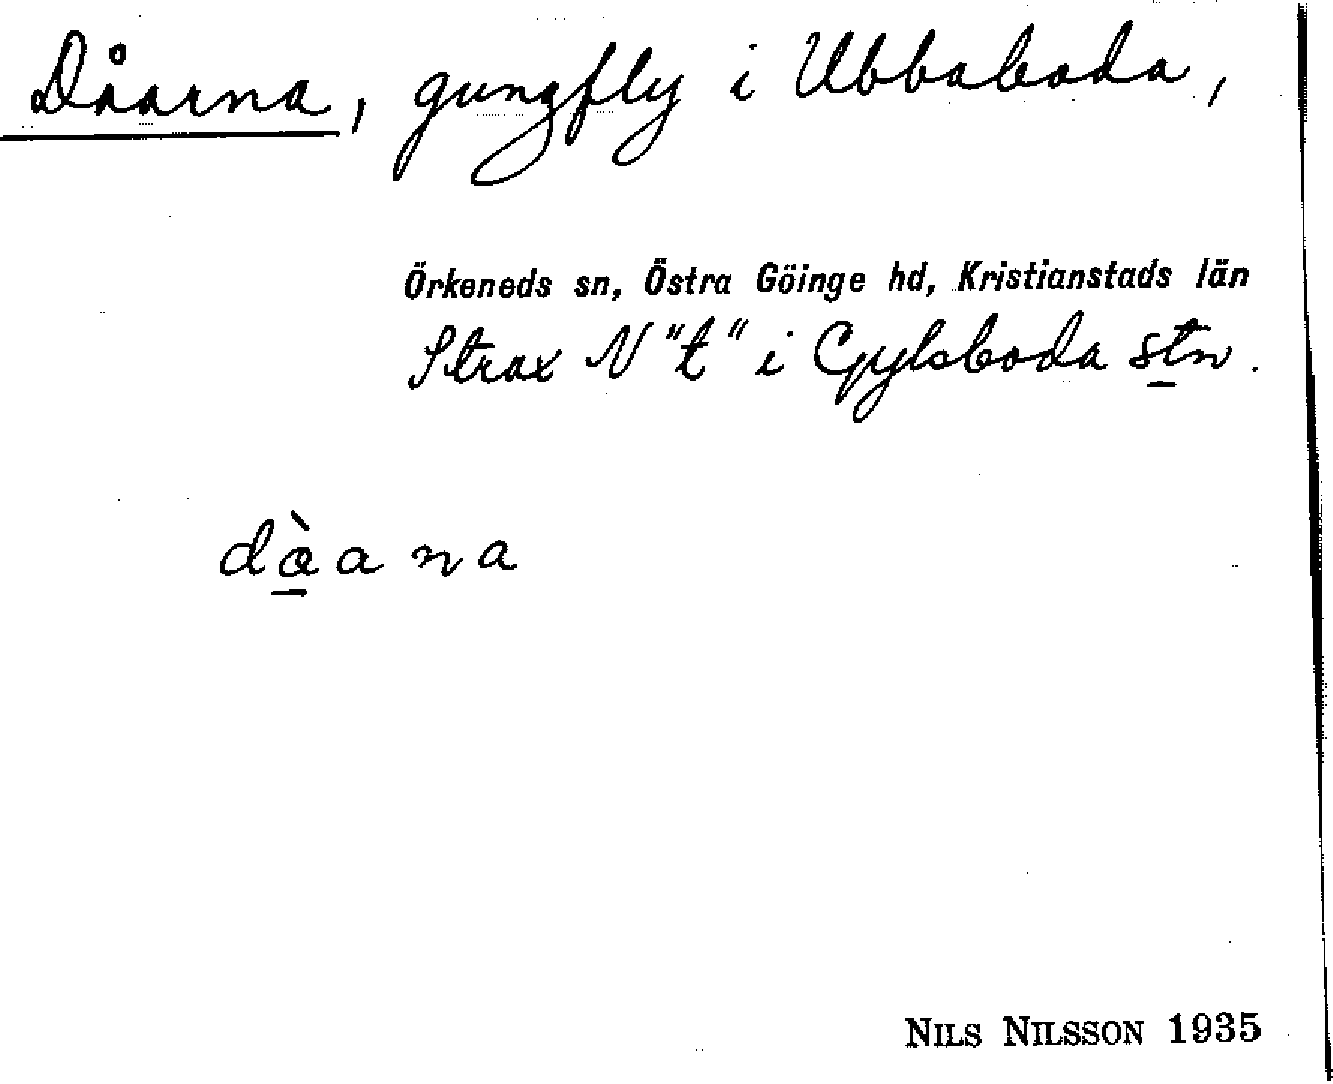 Dåarna, gungfly i Ubbaboda,
Örkeneds sn, Östra Göinge hd, Kristianstads län
Strax N "t" i Gylsboda stn.
dàana
NILS NILSSON 1935